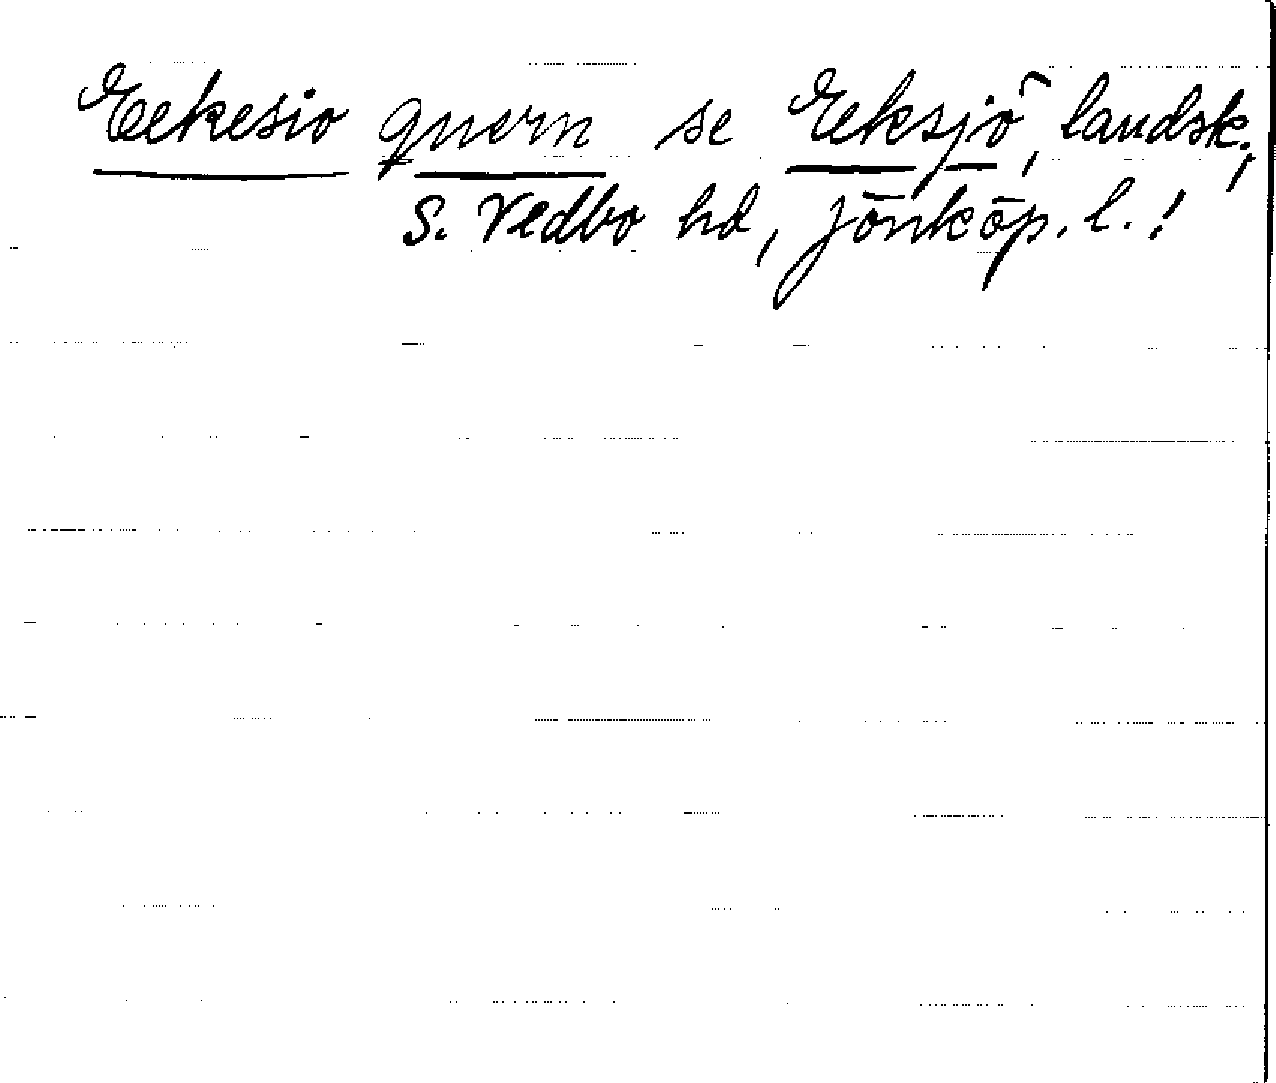 Eekesio quern se Eeksjö, landsk.,
S. Vedbo hd, Jönköp. l.!